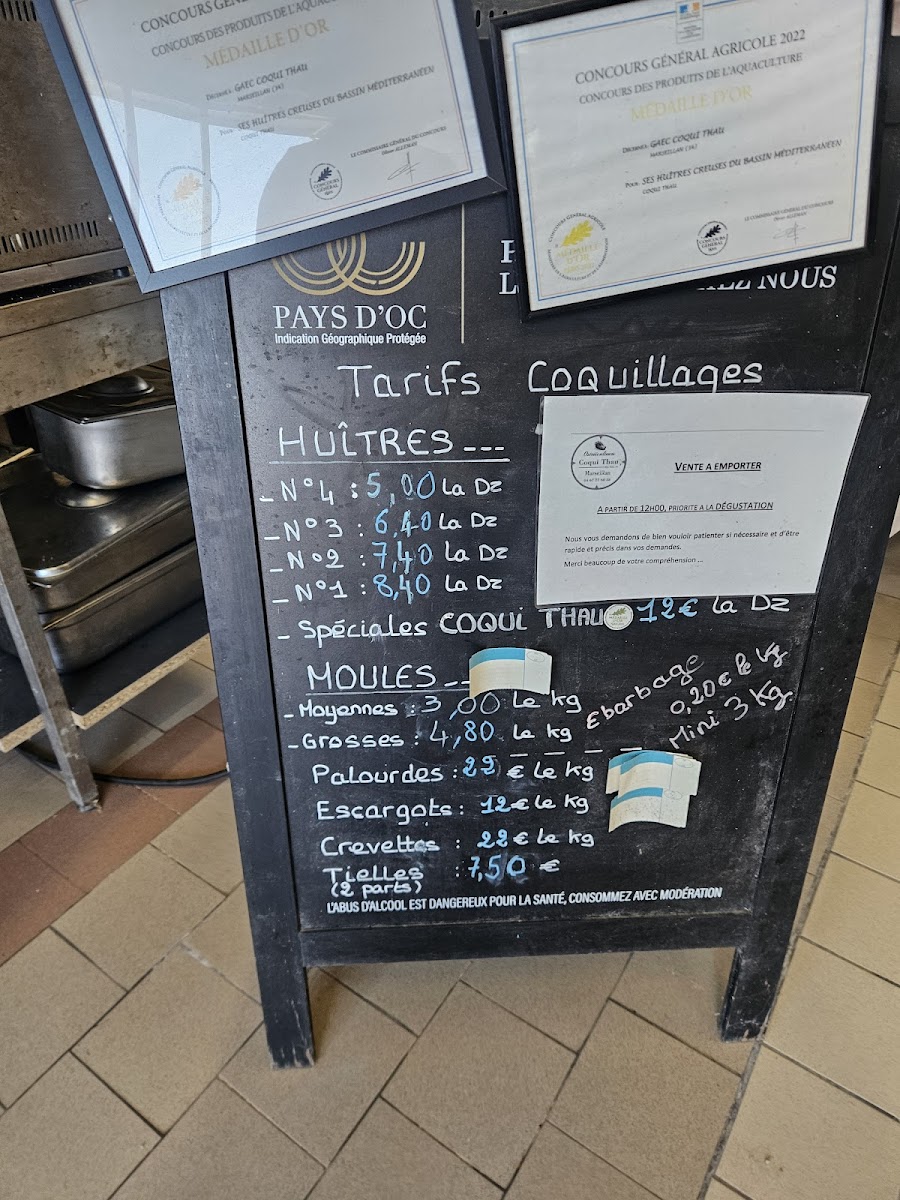 CONCOURS GÉNÉ
CONCOURS DES PRODUITS DE L'AQUACU
MÉDAILLE D'OR
DÉCERNÉE: GAEC COQUI THAU
MARSEILLAN (34)
POUR: SES HUÎTRES CREUSES DU BASSIN MÉDITERRANÉEN
COQUI THAU
LE COMMISSAIRE GÉNÉRAL DU CONCOURS
CONCOURS GÉNÉRAL
CONCOURS GÉNÉRAL AGRICOLE 2022
CONCOURS DES PRODUITS DE L'AQUACULTURE
MÉDAILLE D'OR
DÉCERNÉE: GAEC COQUI THAU
MARSEILLAN (34)
POUR: SES HUÎTRES CREUSES DU BASSIN MÉDITERRANÉEN
COQUI THAU
LE COMMISSAIRE GÉNÉRAL DU CONCOURS
CONCOURS GÉNÉRAL
PAYS D'OC
Indication Géographique Protégée
NOUS
Tarifs Coquillages
HUÎTRES ---
- N°4 : 5,00 la Dz
- N°3 : 6,40 la Dz
- N°2 : 7,40 la Dz
- N°1 : 8,40 la Dz
- Spéciales COQUI THAU 12€ la Dz
Coqui Thau
Marseillan
VENTE A EMPORTER
A PARTIR DE 12H00, PRIORITE A LA DÉGUSTATION
Nous vous demandons de bien vouloir patienter si nécessaire et d'être
rapide et précis dans vos demandes.
Merci beaucoup de votre compréhension ...
MOULES --
- Moyennes : 3,00 le kg
- Grosses : 4,80 le kg
Ebarbage
0,20€ le kg
Mini 3 kg
Palourdes : 22 € le kg
Escargots : 12€ le kg
Crevettes : 22€ le kg
Tielles : 7,50 €
(2 parts)
L'ABUS D'ALCOOL EST DANGEREUX POUR LA SANTÉ, CONSOMMEZ AVEC MODÉRATION